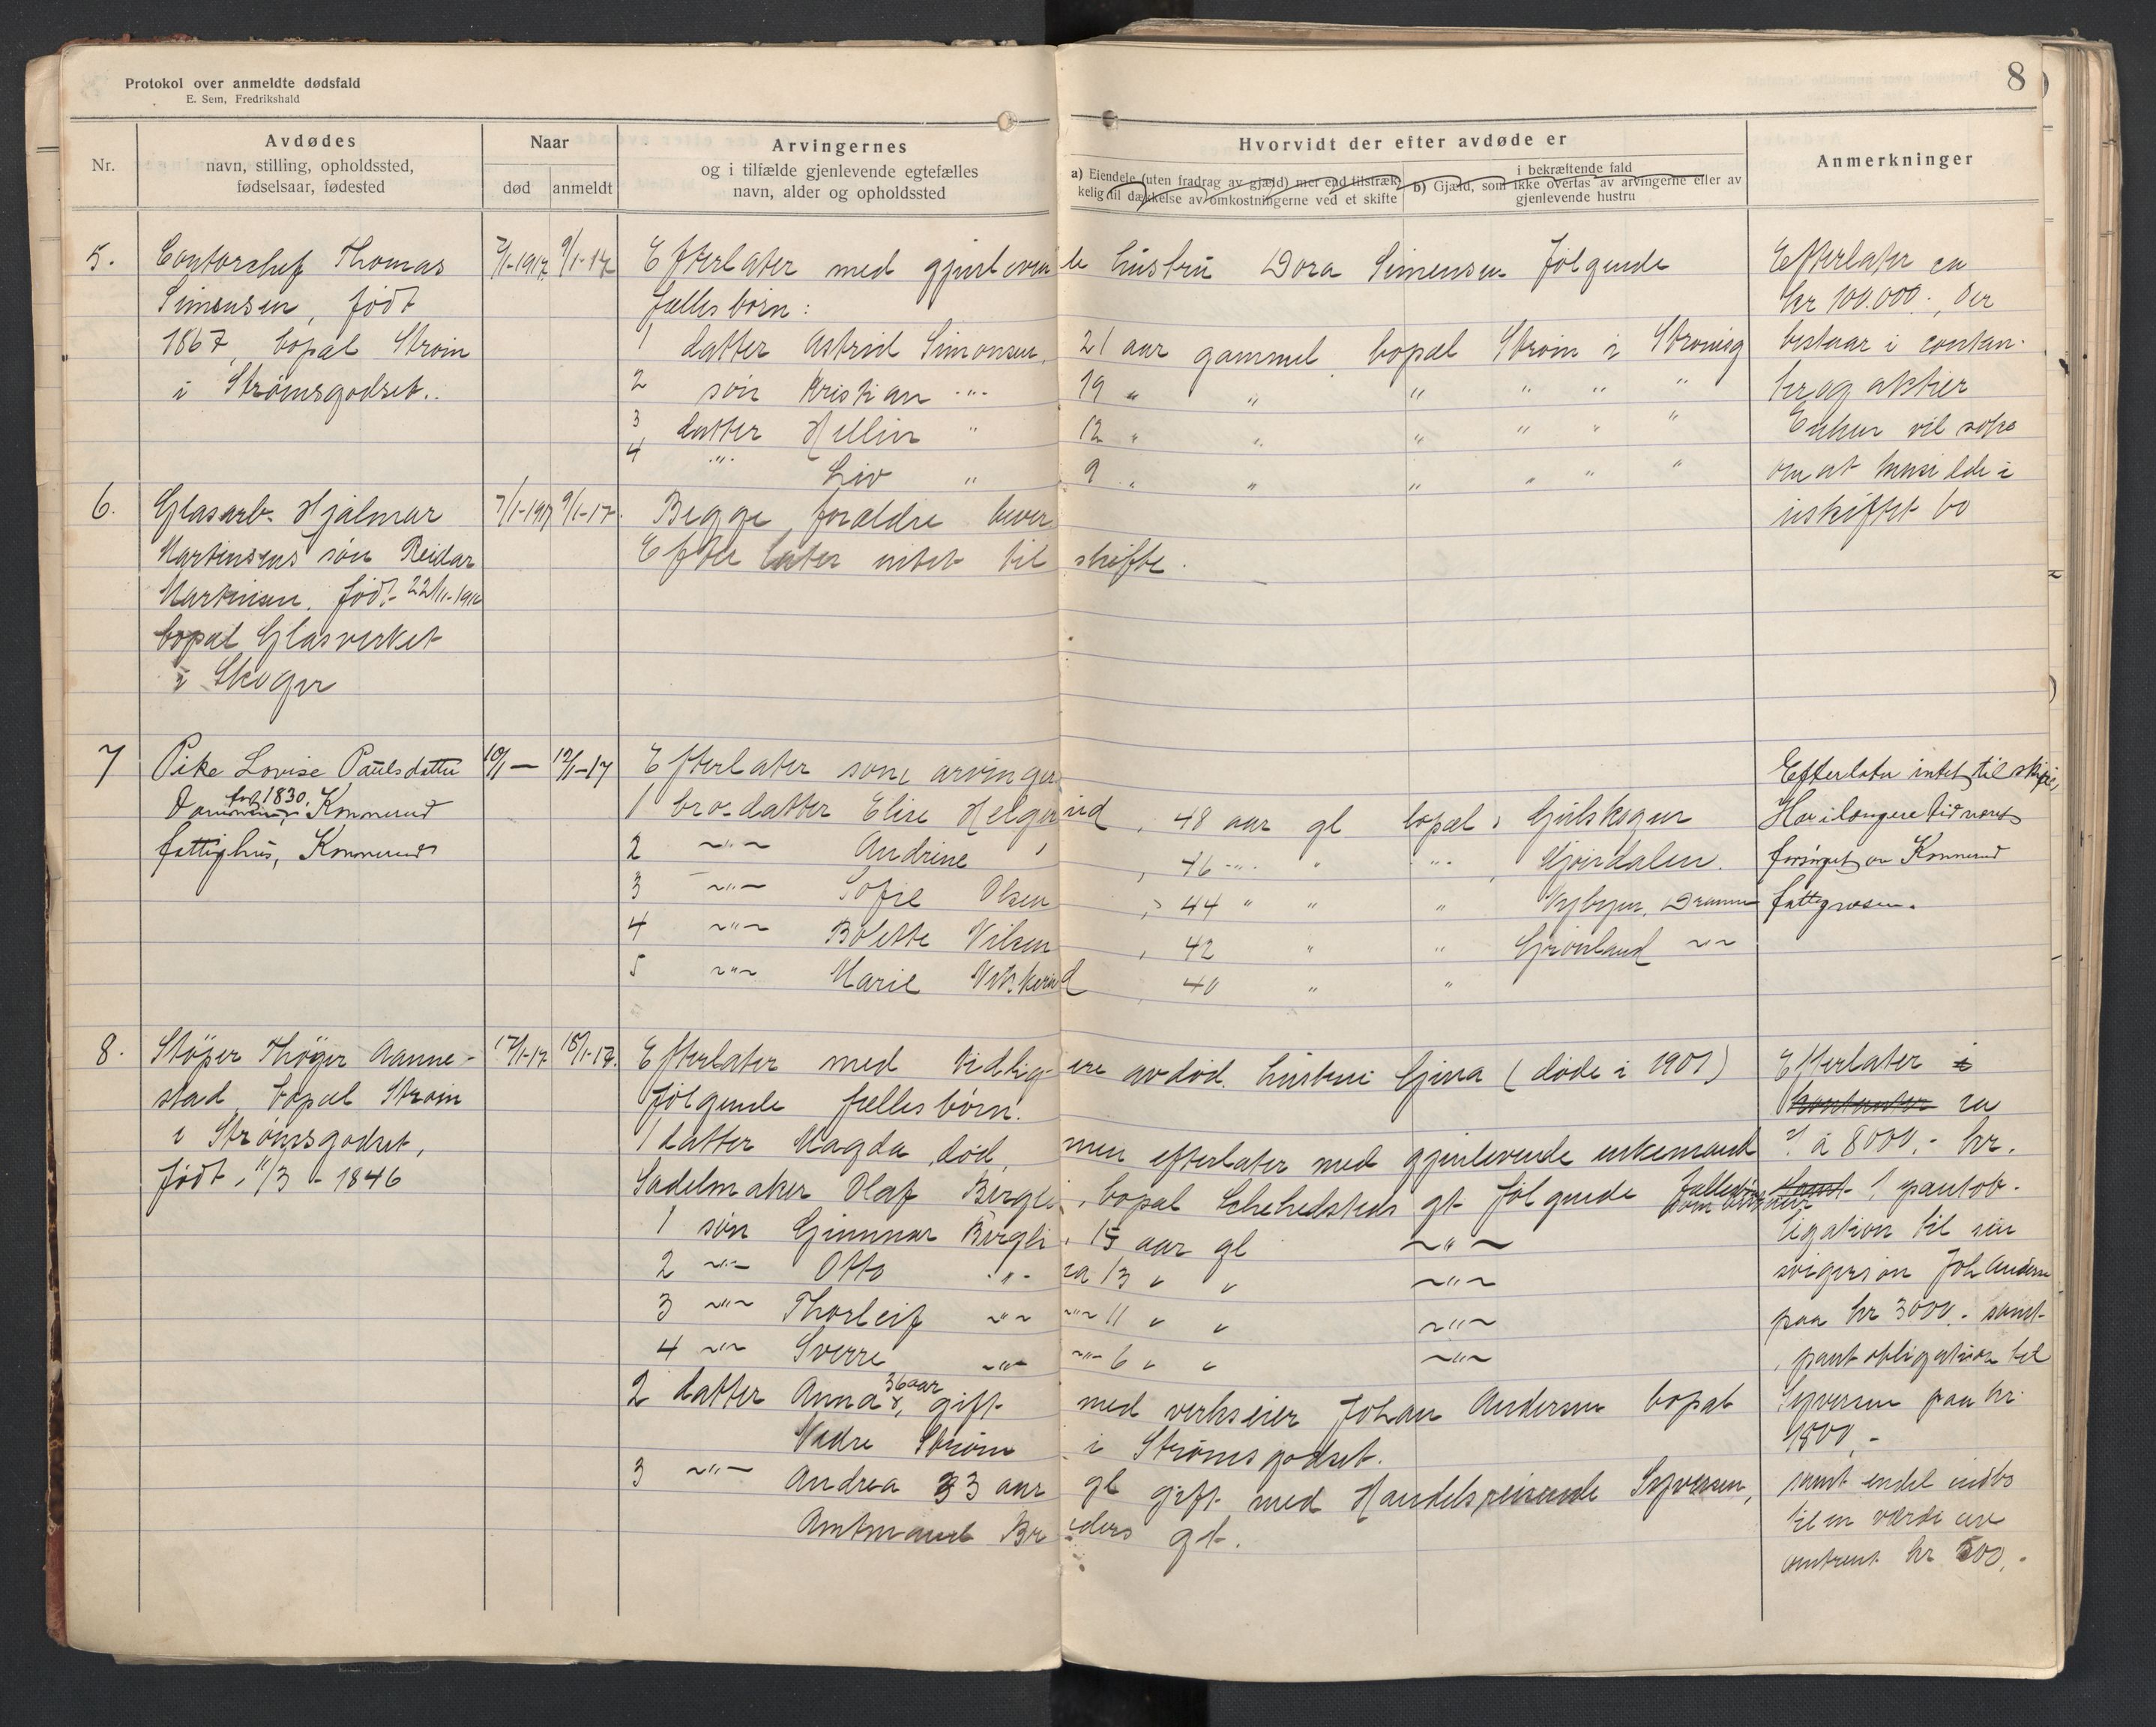 Protokol over anmeldte dødsfald
E. Sem, Fredrikshald
8
Nr.
Avdødes
navn, stilling, opholdssted,
fødselsaar, fødested
Naar
død
anmeldt
Arvingernes
og i tilfælde gjenlevende egtefælles
navn, alder og opholdssted
Hvorvidt der efter avdøde er
a) Eiendele (uten fradrag av gjæld) mer end tilstræk-
kelig til dækkelse av omkostningerne ved et skifte
i bekræftende fald
b) Gjæld, som ikke overtas av arvingerne eller av
gjenlevende hustru
Anmerkninger
5.
Contorchef Thomas
Simensen, født
1867, bopæl Strøm
i Strømsgodset.
7/1-1917
9/1-17
Efterlater med gjenlevende hustru Dora Simensen følgende
fælles børn:
1 datter Astrid Simonsen, 21 aar gammel, bopæl Strøm i Strømsg
2 søn Kristian -"- 19 " " " " " "
3 datter Hellin " 12 " " " " " "
4 -"- Liv " 9 " " " " "
Efterlater ca
kr 100.000.-, der
bestaar i contan-
ter og aktier
Enken vil søke
om at hensidde i
uskiftet bo
6.
Glasarb. Hjalmar
Martinsens søn Reidar
Martinsen, født 22/11-1916
bopæl Glasverket
i Skoger
7/1-1917
9/1-17.
Begge forældre lever
Efterlater intet til skifte.
7
Pike Lovise Paulsdatter
født 1830. Konnerud
fattighus, Konnerud
10/1 —
12/1-17
Efterlater som arvinger
1 brordatter Elise Helgerud, 48 aar gl bopæl, Gulskogen
2 -"- Andrine , 46 -"- " -"- , Gjøirdalen.
3 -"- Sofie Olsen , 44 " " " Nybyen, Drammen
4 -"- Bolette Nilsen , 42 " " Grønland -"-
5 -"- Marie 40 " "
Efterlater intet til skifte,
Har i længere tid været
forsørget av Konnerud
fattigvæsen.
8.
Støper Thøger Aanne-
stad bopæl Strøm
i Strømsgodset,
født 11/3 - 1846
17/1-17
18/1-17.
Efterlater med tidligere avdød hustru Gina (døde i 1901)
følgende fælles børn.
1 datter Magda død, men efterlater med gjenlevende enkemand
Sadelmaker Olaf Bergli, bopæl gt følgende fællesbørn
1 søn Gunnar Bergli, 15 aar gl -"-
2 -"- Otto -"- ca 13 " " -"-
3 -"- Thorleif -"- -"- 11 " " -"-
4 -"- Sverre -"- -"- 6 " " -"-
2 datter Anna 36 aar, gift med verkseier Johan Andersen bopæl
Nedre Strøm i Strømsgodset.
3 -"- Andrea 33 aar gl gift med Handelsreisende Syversen,
Amtmand gt.
Efterlater i
kontanter ca
7 à 8000.- kr.
samt 1 pantob-
ligation til sin
svigersøn Joh Andersen
paa kr 3000.- samt
pantobligation til
Syversen paa kr.
1800,-
samt endel indbo
til en værdi av
omtrent kr 500,-